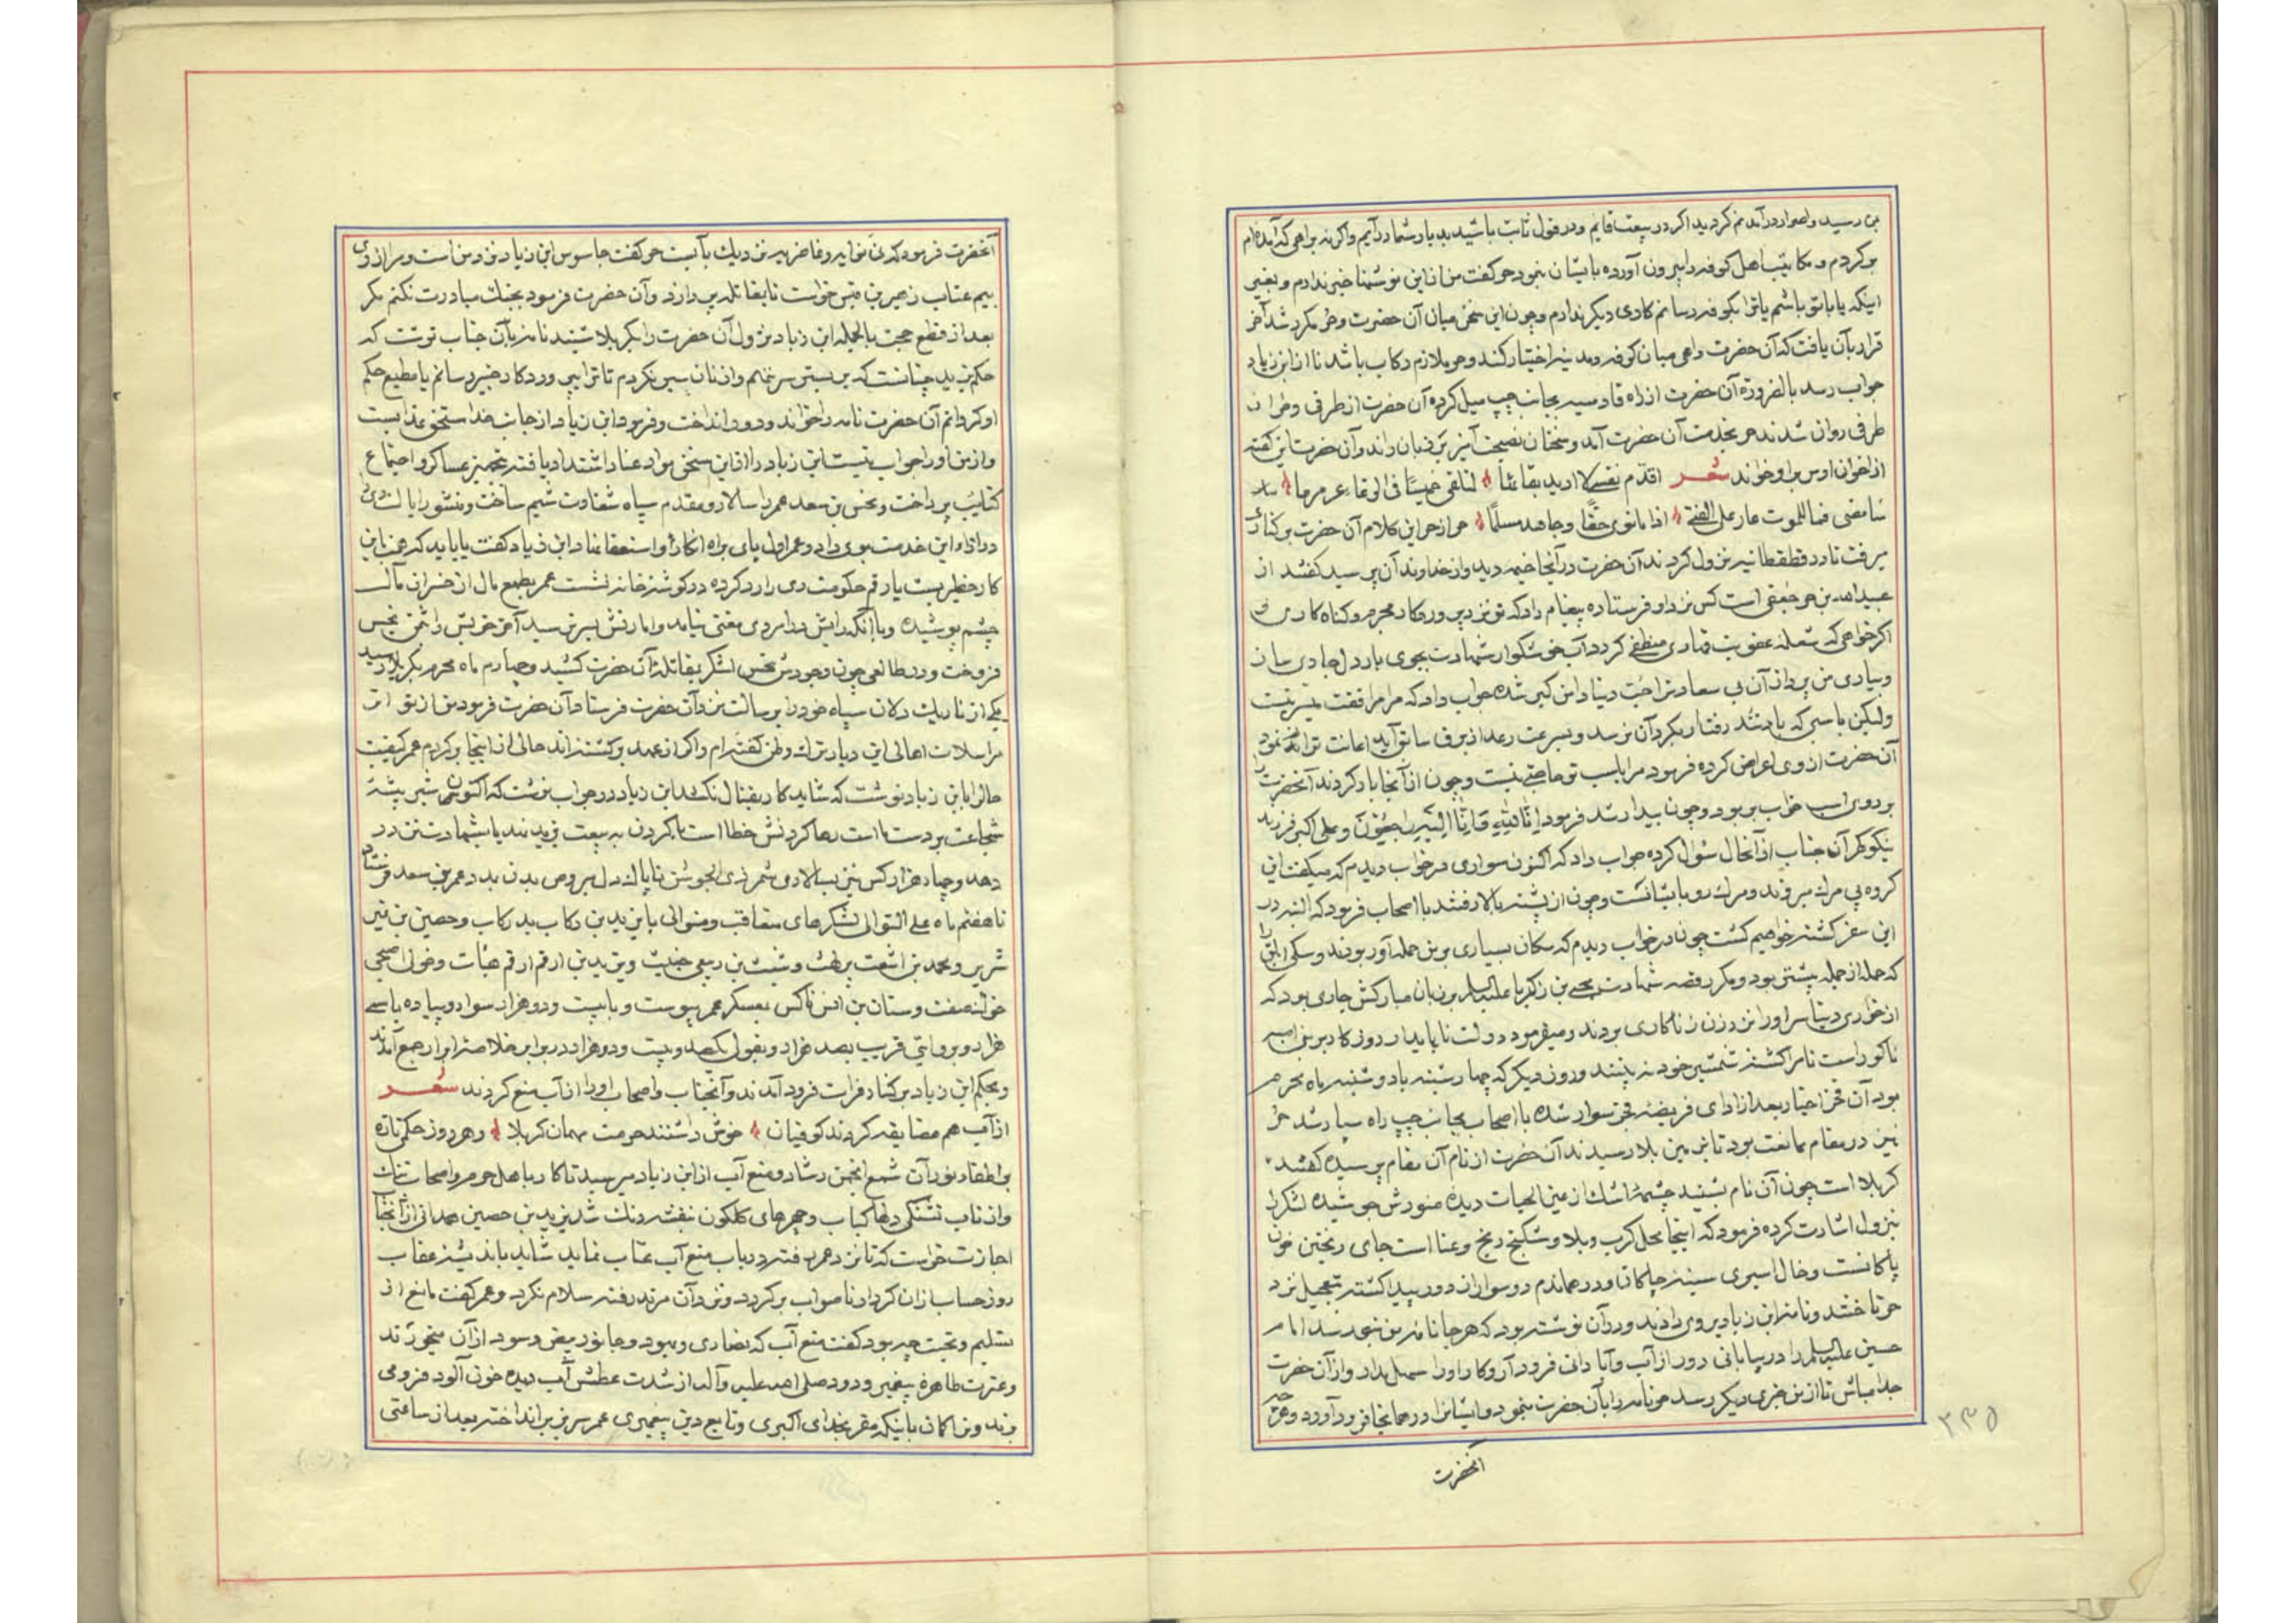 بمن رسید و اصرار در آمدنم کردید اگر در بیعت قایم و در قول ثابت باشید بدیار شما درآیم و اگر نه براهی که آمده‌ام
برگردم و مکاتیب اهل کوفه را بیرون آورده بایشان بنمود حر گفت من از این نوشتها خبر ندارم و بغیر
اینکه یا با تو باشم یا ترا بکوفه رسانم کاری دیگر ندارم و چون این سخن میان آن حضرت و حر مکرر شد آخر
قرار بآن یافت که آن حضرت راهی میان کوفه و مدینه اختیار کند و حر ملازم رکاب باشد تا از ابن زیاد
جواب رسد بالضرورة آن حضرت از راه قادسیه بجانب چپ میل کرده آن حضرت از طرفی و حر از
طرفی روان شدند حر بخدمت آن حضرت آمد و سخنان نصیحت آمیز بر زبان راند و آن حضرت این گفته
از اخوان اوس برو خواند شعر اقدم نفسی لا ارید بقائها لتلقی خمیسا فی الوغا عرمرما
سامضی فما للموت عار علی الفتی اذا ما نوی حقا و جاهد مسلما حر از حر این کلام آن حضرت بر کناره
میرفت تا در قطقطانیه نزول کردند آن حضرت در آنجا خیمه دید و از خداوند آن پرسید گفتند از
عبیدالله بن حر جعفی است کس نزد او فرستاده پیغام داد که تو نزد پروردگار مجرم و گناه کاری
اگر خواهی که شعله عقوبت قهاری منطفی گردد آب خوشگوار شهادت بجوی بار دل جاری ساز
و بیاری من پرداز آن بی سعادت را حب دنیا دامن گیر شده جواب داد که مرا مرافقت میسر نیست
ولیکن باسبی که باد تند رفتار بگرد آن نرسد و بسرعت رعد از برق سابق آید اعانت توانم نمود
آن حضرت از وی اعراض کرده فرمود مرا باسب تو حاجتی نیست و چون از آنجا بار کردند آنحضرت را
بر روی اسب خواب بربود و چون بیدار شد فرمود انا لله و انا الیه راجعون و علی اکبر فرزند
نیکو گهر آن جناب از آنحال سئوال کرده جواب داد که اکنون سواری در خواب دیدم که میگفت این
گروه پی مرگ میروند و مرگ رو بایشانست و چون از پشته بالا رفتند با اصحاب فرمود که البته در
این سفر کشته خواهیم گشت چون در خواب دیدم که سگان بسیاری بر من حمله آور بودند و سگی ابلق را
که حمله از جمله بیشتر بود و مکرر قصه شهادت یحیی بن زکریا علیه السلام بر زبان مبارکش جاری بود که
از خواری دنیا سر او را نزد زن زناکاری بردند و میفرمود دولت ناپایدار روزگار بر بنی امیه
ناگوار است تا مرا کشته شمشیر خود نه بینند و روز دیگر که چهارشنبه یا دوشنبه ماه محرم
بود آن فخر اخیار بعد از ادای فریضه فجر سوار شده با اصحاب بجانب چپ راه سپار شد حر
نیز در مقام ممانعت بود تا بزمین بلا رسیدند آن حضرت از نام آن مقام پرسیده گفتند
کربلا است چون آن نام بشنید چشمه اشک از عین الحیات دیده منورش جوشیده لشکر را
بنزول اشارت کرده فرمود که اینجا محل کرب و بلا و شکنج و رنج و عنا است جای ریختن خون
پاکانست و خال اسیری سینه چاکان و در همان دم دو سوار از دور پیدا گشته بتعجیل نزد
حر تاختند و نامه ابن زیاد بروی دادند و در آن نوشته بود که هر جا نامه من بتو رسد امام
حسین علیه السلام را در بیابانی دور از آب و آبادانی فرود آر و کار او را سهل مدار و از آن حضرت
جدا مباش تا از من خبری دیگر رسد حر نامه را بآن حضرت بنمود و ایشانرا در همانجا فرود آورد و هر چند
آنحضرت
۳۳۵
آنحضرت فرمود که در نینوا یا در غاضریه نزدیک بآبست حر گفت جاسوس ابن زیاد نزد من است و مرا از وی
بیم عتاب زهیر بن قین خواست تا بمقاتله پردازد و آن حضرت فرمود بجنگ مبادرت نکنم مگر
بعد از قطع حجت بالجمله ابن زیاد نزول آن حضرت را بکربلا شنید نامه بآن جناب نوشت که
حکم یزید چنانست که بر بستر سر ننهم و از نان سیر نگردم تا ترا بپروردگار خبیر رسانم یا مطیع حکم
او گردانم آن حضرت نامه را خواند و دور انداخت و فرمود ابن زیاد از جانب خدا مستحق عذابست
و از من او را جواب نیست ابن زیاد را از این سخن مواد عناد اشتداد یافته بتجهیز عساکر و اجتماع
کتایب پرداخت و نحس بن سعد عمر را سالار و مقدم سپاه شقاوت شیم ساخت و منشور ایالت ری
در ازاء این خدمت بوی داد و عمر اول پای براه انکار و استعفا نهاد ابن زیاد گفت یا باید که عزم این
کار خطیر بست یا رقم حکومت ری را رد کرده در گوشه خانه نشست عمر بطمع مال از خسران مآل
چشم پوشیده و با آنکه رایش در امر دی مفتی نیامد و امارتش میسر نشد آخرت خویش را بثمن بخس
فروخت و در طالعی چون وجودش نحس لشکر بمقاتله آن حضرت کشید و چهارم ماه محرم بکربلا رسید
یکی از تاریک دلان سپاه خود را برسالت نزد آن حضرت فرستاد آن حضرت فرمود من از تواتر
مراسلات اهالی این دیار ترک وطن گفته‌ام و اگر از عهد برگشته‌اند حالی از اینجا برگردم عمر کیفیت
حالرا بابن زیاد نوشت که شاید کار بقتال نکشد ابن زیاد در جواب نوشت که اکنون شیر بیشه
شجاعت بر دست ما است رها کردنش خطا است یا گردن به بیعت یزید نهد یا بشهادت تن در
دهد و چهار هزار کس نیز بسالاری شمر ذی الجوشن ناپاک دل مبروص بدن بمدد عمر بن سعد فرستاد
تا هفتم ماه علی التوالی لشکرهای متعاقب و متوالی با یزید بن رکاب بد رکاب و حصین بن نمیر
شریر و محمد بن اشعث پر لهث و شبث بن ربعی خبیث و یزید بن ارقم ارقم هیأت و خولی اصبحی
خوک صفت و سنان بن انس ناکس بعسکر عمر پیوست و با بیست و دو هزار سوار و پیاده یا سی
هزار و بروایتی قریب بصد هزار و بقول یکصد و بیست و دو هزار در برابر خلاصه ابرار جمع آمدند
و بحکم ابن زیاد بر کنار فرات فرود آمدند و آنجناب و اصحاب او را از آب منع کردند شعر
از آب هم مضایقه کردند کوفیان خوش داشتند حرمت مهمان کربلا و هر روز حکمی تازه
بر اطفاء نور آن شمع انجمن رشاد و منع آب از ابن زیاد میرسید تا کار با اهل حرم و اصحاب تنگ
و از تاب تشنگی دلها کباب و چهرهای گلگون بنفشه رنگ شد یزید بن حصین همدانی از آنجناب
اجازت خواست که تا نزد عمر رفته در باب منع آب عتاب نماید شاید باندیشه عقاب
روز حساب از آن کردار ناصواب برگردد و نزد آن مرتد رفته سلام نکرد و عمر گفت مانع از
تسلیم و تحیت چه بود گفت منع آب که نصاری و یهود و جانور بیض و سود از آن میخورند
و عترت طاهره پیغمبر ودود صلی الله علیه و آله از شدت عطش آب دیده خون آلود فرو می
برند و من اکان باینکه مقر بخدای اکبری و تابع دین پیغمبری عمر سر بزیر انداخته بعد از ساعتی